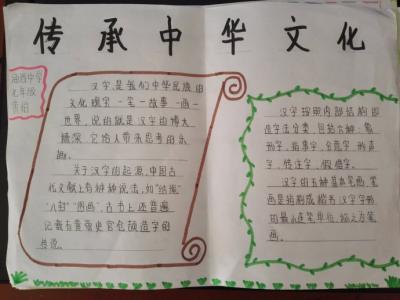 传承中华文化
海西中学
七年级
汉字,是我们中华民族的
文化瑰宝,一笔一故事,一画一
世界,说的就是汉字的博大
精深,它给人带来思考的乐
趣。
关于汉字的起源,中国古
代文献上有种种说法,如“结绳”
“八卦”“图画”,古书上还普遍
记载有黄帝史官仓颉造字的
传说。
汉字按照内部结构即
造字法分类,包括六种:象
形字、指事字、会意字、形声
字、转注字、假借字。
汉字的五种基本笔画,笔
画是指构成楷书汉字字形
的最小连笔单位,称之为笔
画。